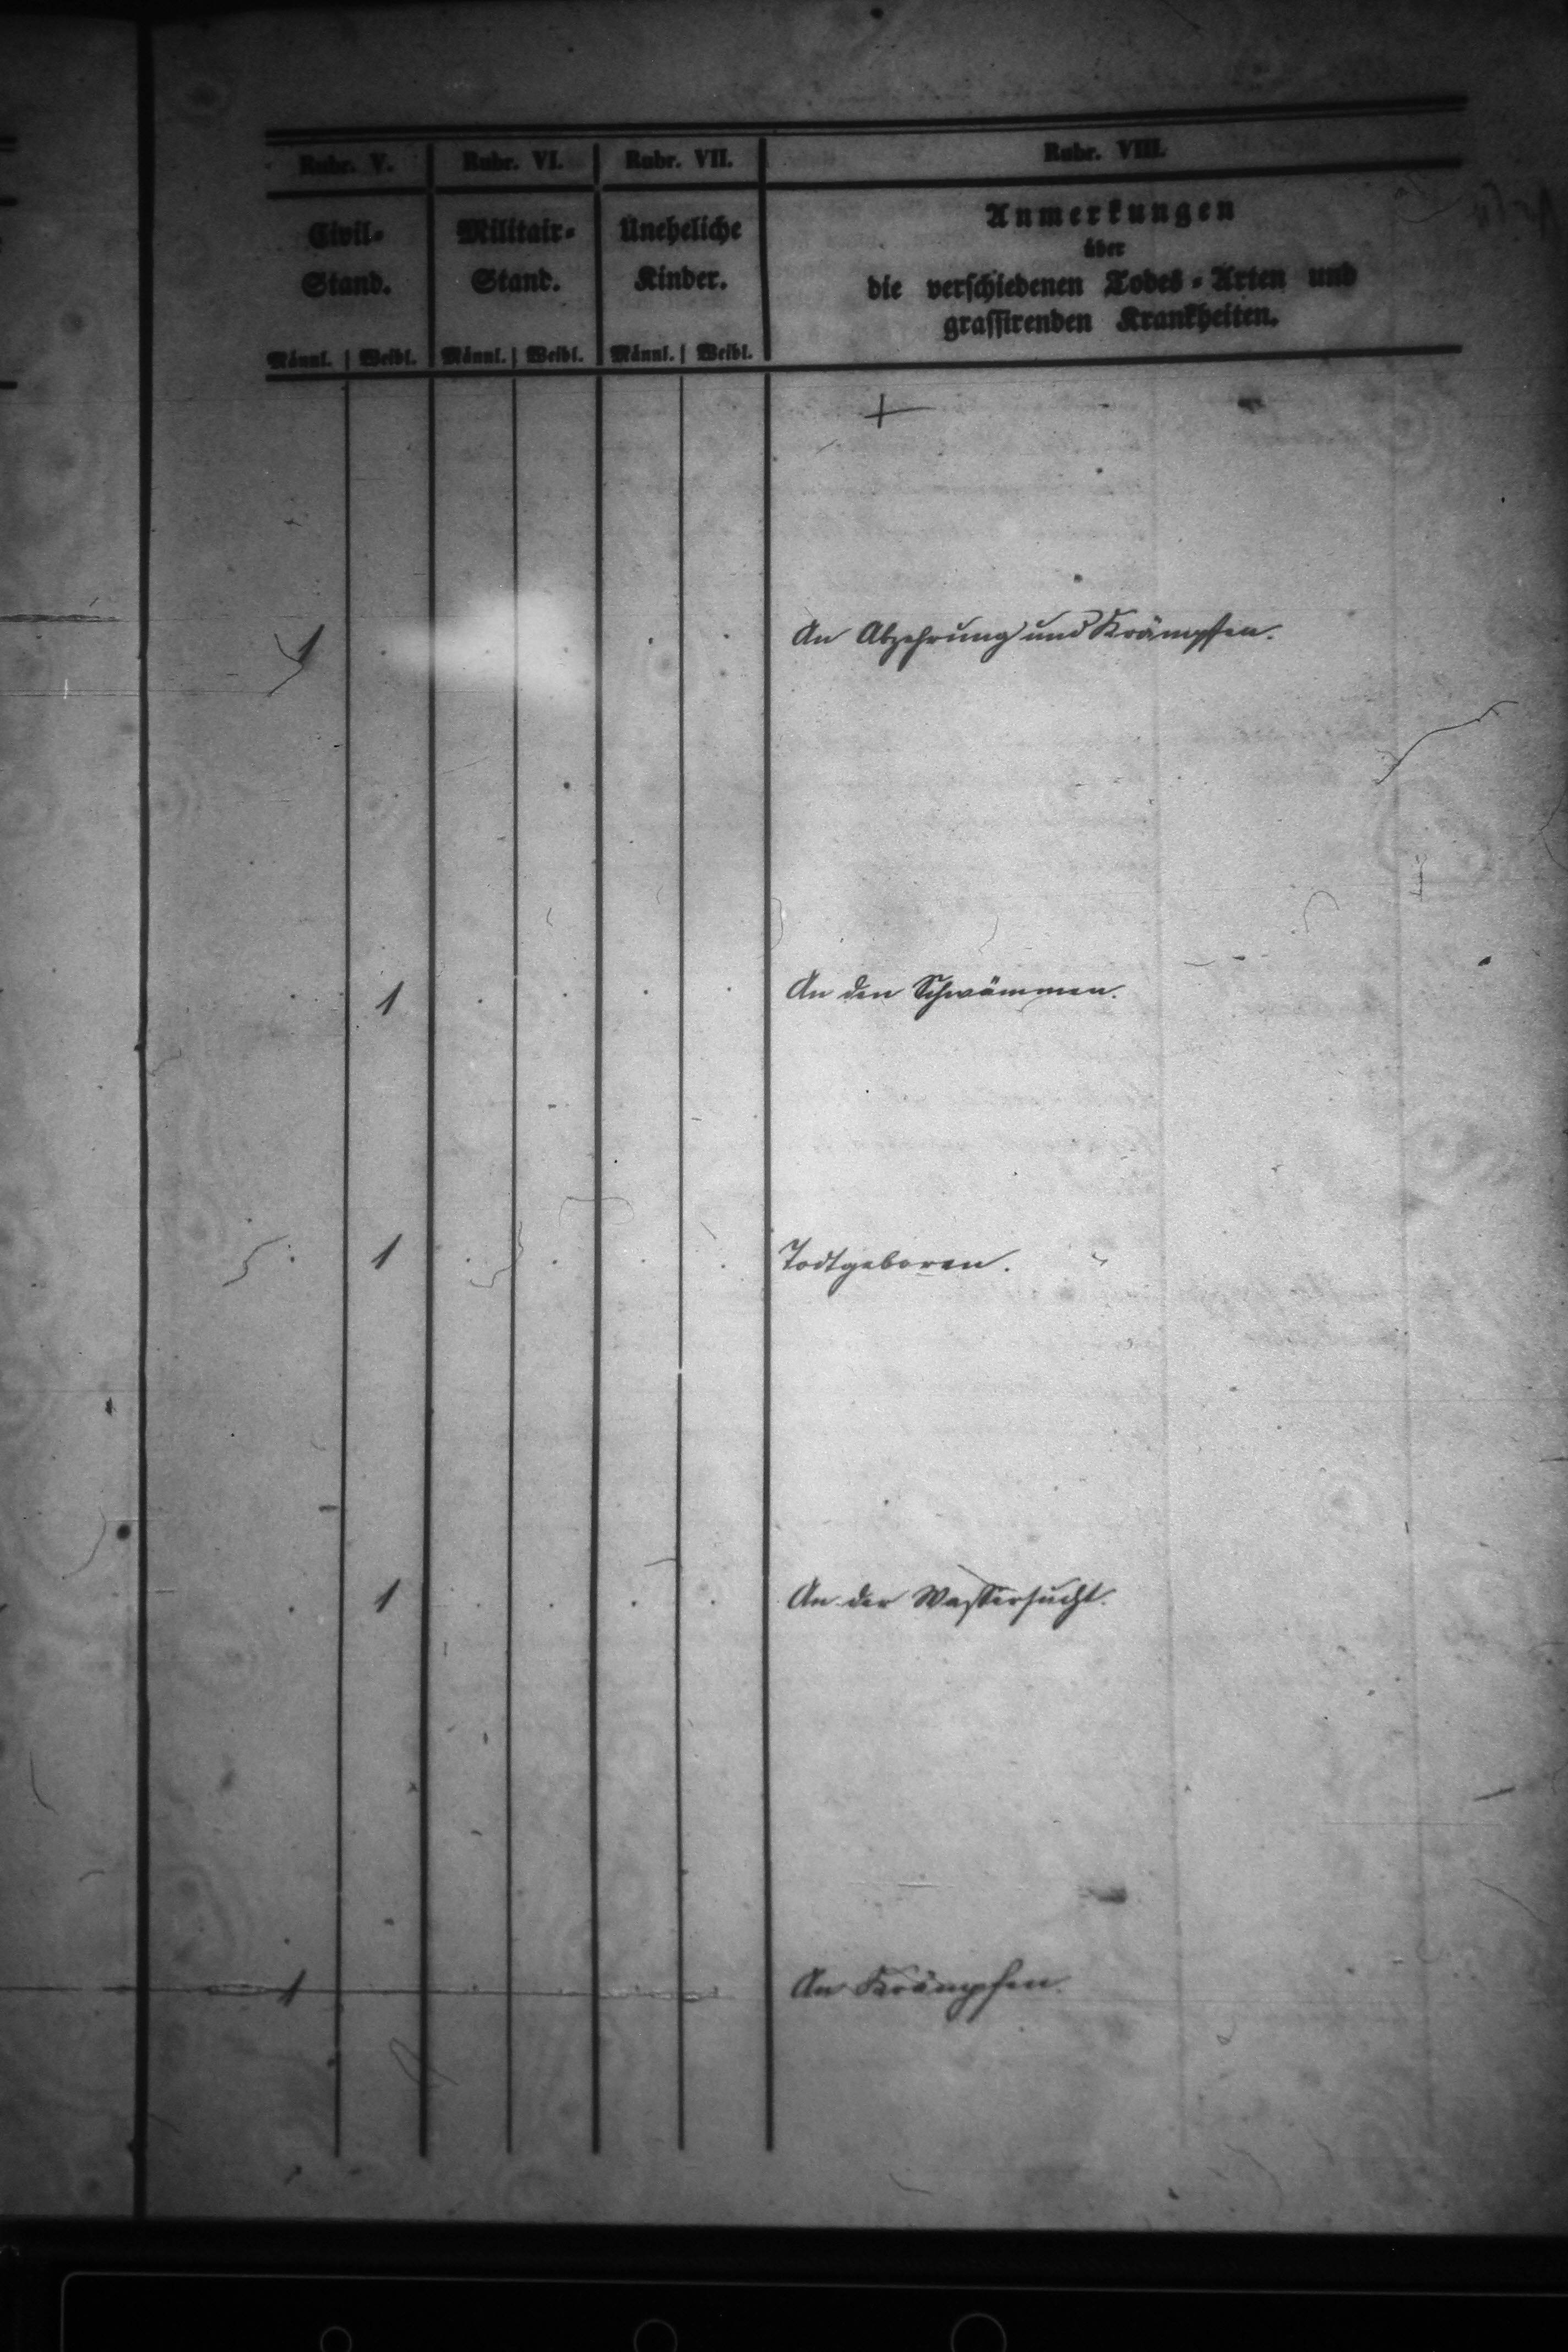 Rubr. V. Rubr. VI. Rubr. VII. Rubr. VIII.
Civil- Militair- Uneheliche Anmerkungen
über
Stand. Stand. Kinder. die verschiedenen Todes-Arten und
grassirenden Krankheiten.
Männl. Weibl. Männl. Weibl. Männl. Weibl.
1 . . . An Abzehrung und Krämpfen.
. 1 . . . . An den Schwämmen.
. 1 . . . . Todtgeboren.
. 1 . . . . An der Wassersucht.
1 An Krämpfen.